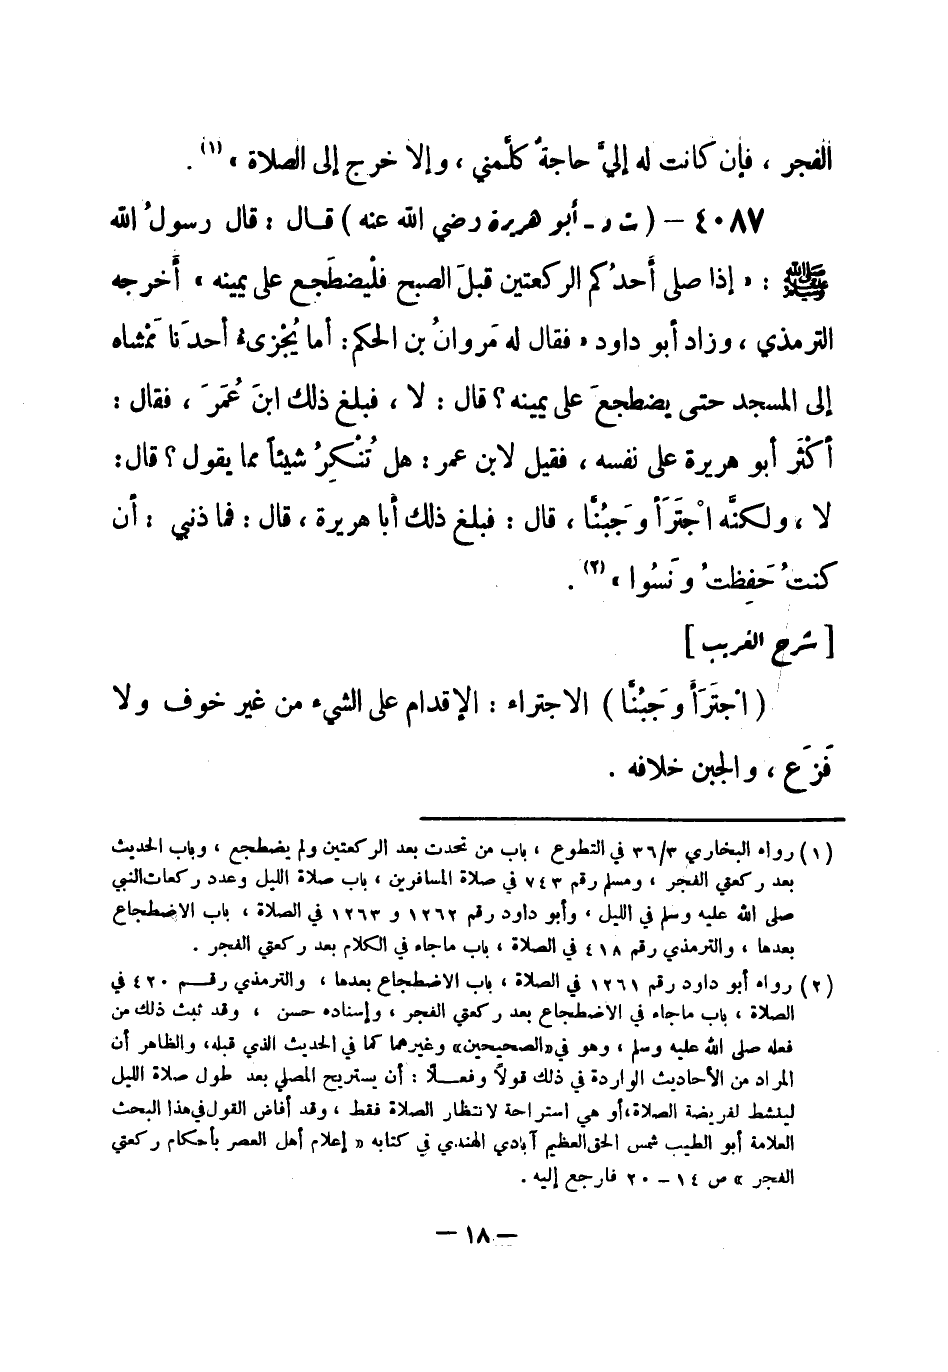 الفجر ، فإن كانت له إليَّ حاجةٌ كلَّمني ، وإلا خرج إلى الصلاة » (١) .
٤٠٨٧ – ( ت د - أبو هريرة رضي الله عنه ) قـال : قال رسولُ الله
ﷺ : « إذا صلى أَحدُكم الركعتين قبلَ الصبح فلْيضطَجِع على يمينه » أَخرجه
الترمذي ، وزاد أبو داود « فقال له مَروانُ بن الحكم : أما يُجْزىءُ أحدَنا مَمْشاه
إلى المسجد حتى يضطجعَ على يمينه ؟ قال : لا ، فبلغ ذلك ابنَ عُمَرَ ، فقال :
أَكْثَر أبو هريرة على نفسه ، فقيل لابن عمر : هل تُنْكِرُ شيئاً مما يقول ؟ قال :
لا ، ولكنَّه اجْتَرَأَ وَجَبُنَّا ، قال : فبلغ ذلك أبا هريرة ، قال : فما ذنبي : أن
كنتُ حَفِظتُ ونَسُوا » (٢) .
[ شرح الغريب ]
( اجْتَرَأَ وجَبُنَّا ) الاجتراء : الإقدام على الشيء من غير خوف ولا
فَزَع ، والجبن خلافه .
(١) رواه البخاري ٣/٣٦ في التطوع ، باب من تحدث بعد الركعتين ولم يضطجع ، وباب الحديث
بعد ركعتي الفجر ، ومسلم رقم ٧٤٣ في صلاة المسافرين ، باب صلاة الليل وعدد ركعات النبي
صلى الله عليه وسلم في الليل ، وأبو داود رقم ١٢٦٢ و ١٢٦٣ في الصلاة ، باب الاضطجاع
بعدها ، والترمذي رقم ٤١٨ في الصلاة ، باب ماجاء في الكلام بعد ركعتي الفجر .
(٢) رواه أبو داود رقم ١٢٦١ في الصلاة ، باب الاضطجاع بعدها ، والترمذي رقـم ٤٢٠ في
الصلاة ، باب ماجاء في الاضطجاع بعد ركعتي الفجر ، وإسناده حسن ، وقد ثبت ذلك من
فعله صلى الله عليه وسلم ، وهو في «الصحيحين» وغيرهما كما في الحديث الذي قبله ، والظاهر أن
المراد من الأحاديث الواردة في ذلك قولاً وفعـلاً : أن يستريح المصلي بعد طول صلاة الليل
لينشط لفريضة الصلاة ، أو هي استراحة لانتظار الصلاة فقط ، وقد أفاض القول في هذا البحث
العلامة أبو الطيب شمس الحق العظيم آبادي الهندي في كتابه « إعلام أهل العصر بأحكام ركعتي
الفجر » ص ١٤ – ٢٠ فارجع إليه .
– ١٨ –